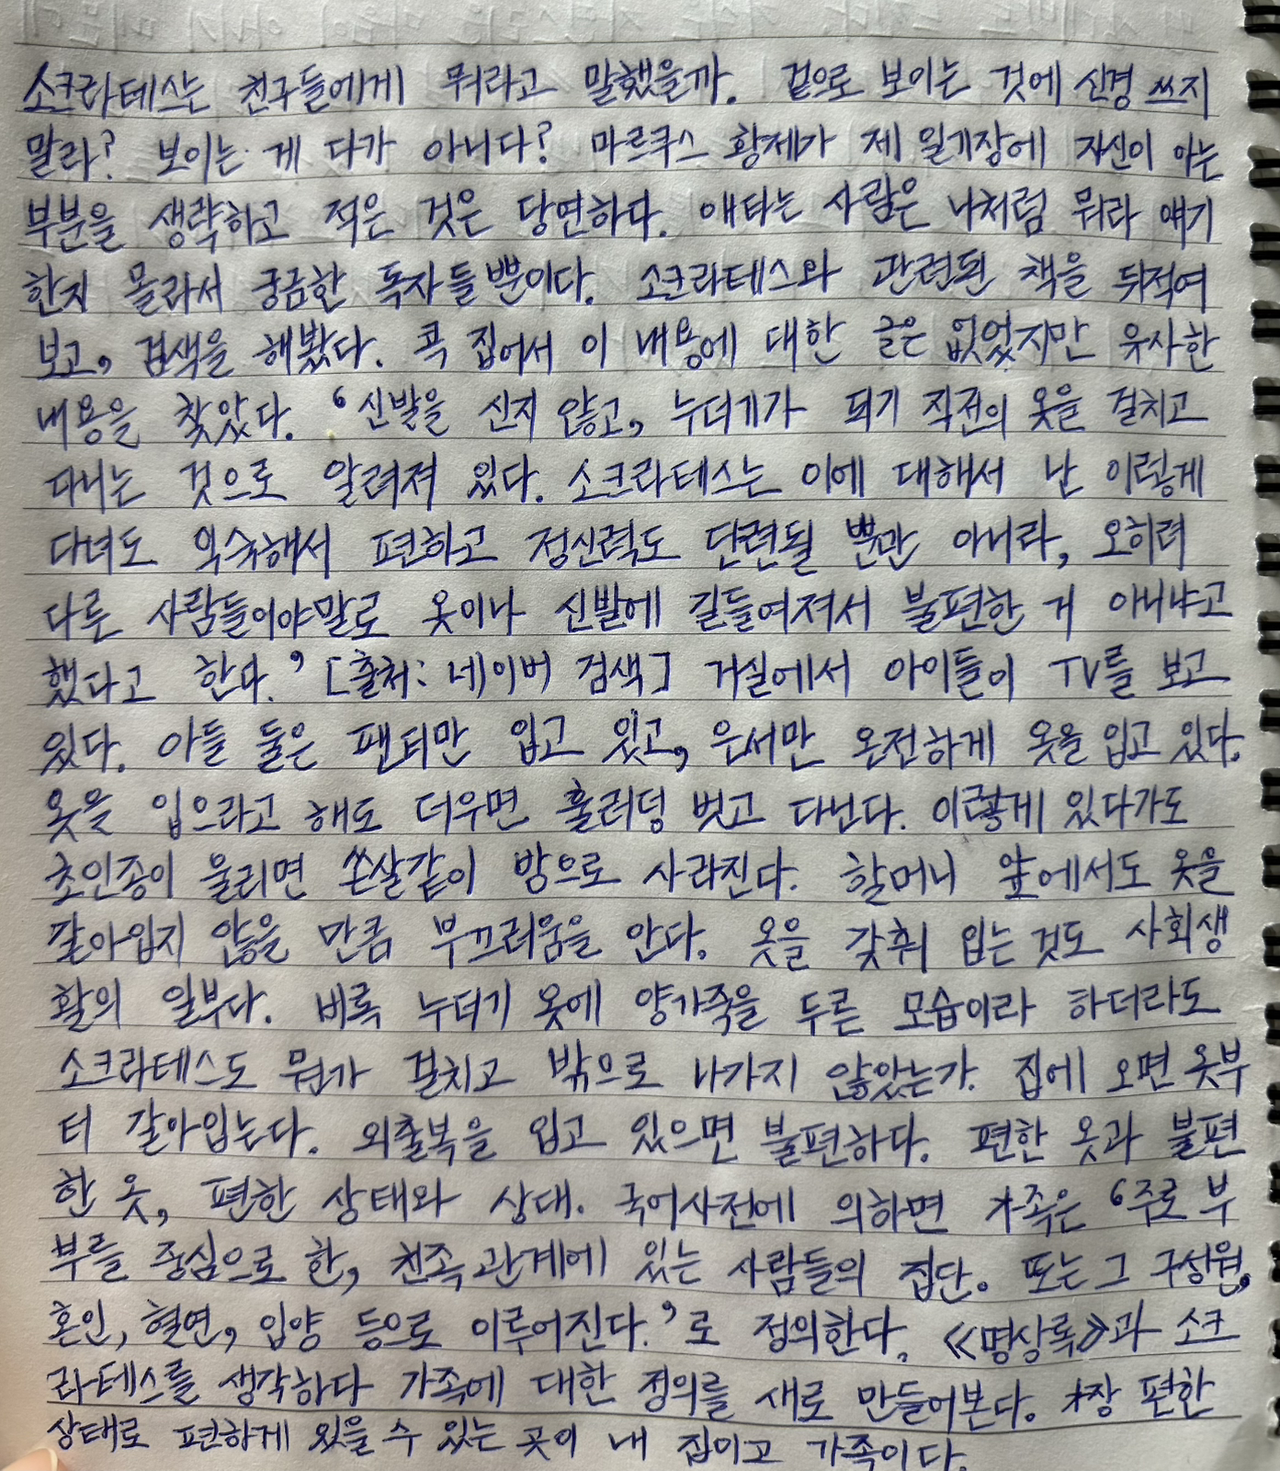 소크라테스는 친구들에게 뭐라고 말했을까. 겉으로 보이는 것에 신경 쓰지
말라? 보이는 게 다가 아니다? 마르쿠스 황제가 제 일기장에 자신이 아는
부분을 생략하고 적은 것은 당연하다. 애타는 사람은 나처럼 뭐라 얘기
한지 몰라서 궁금한 독자들뿐이다. 소크라테스와 관련된 책을 뒤적여
보고, 검색을 해봤다. 콕 집어서 이 내용에 대한 글은 없었지만 유사한
내용을 찾았다. ‘신발을 신지 않고, 누더기가 되기 직전의 옷을 걸치고
다니는 것으로 알려져 있다. 소크라테스는 이에 대해서 난 이렇게
다녀도 익숙해서 편하고 정신력도 단련될 뿐만 아니라, 오히려
다른 사람들이야말로 옷이나 신발에 길들여져서 불편한 거 아니냐고
했다고 한다.’ [출처: 네이버 검색] 거실에서 아이들이 TV를 보고
있다. 아들 둘은 팬티만 입고 있고, 은서만 온전하게 옷을 입고 있다.
옷을 입으라고 해도 더우면 훌러덩 벗고 다닌다. 이렇게 있다가도
초인종이 울리면 쏜살같이 방으로 사라진다. 할머니 앞에서도 옷을
갈아입지 않을 만큼 부끄러움을 안다. 옷을 갖춰 입는 것도 사회생
활의 일부다. 비록 누더기 옷에 양가죽을 두른 모습이라 하더라도
소크라테스도 뭔가 걸치고 밖으로 나가지 않았는가. 집에 오면 옷부
터 갈아입는다. 외출복을 입고 있으면 불편하다. 편한 옷과 불편
한 옷, 편한 상태와 상대. 국어사전에 의하면 가족은 ‘주로 부
부를 중심으로 한, 친족 관계에 있는 사람들의 집단. 또는 그 구성원.
혼인, 혈연, 입양 등으로 이루어진다.’로 정의한다. 《명상록》과 소크
라테스를 생각하다 가족에 대한 정의를 새로 만들어본다. 가장 편한
상태로 편하게 있을 수 있는 곳이 내 집이고 가족이다.